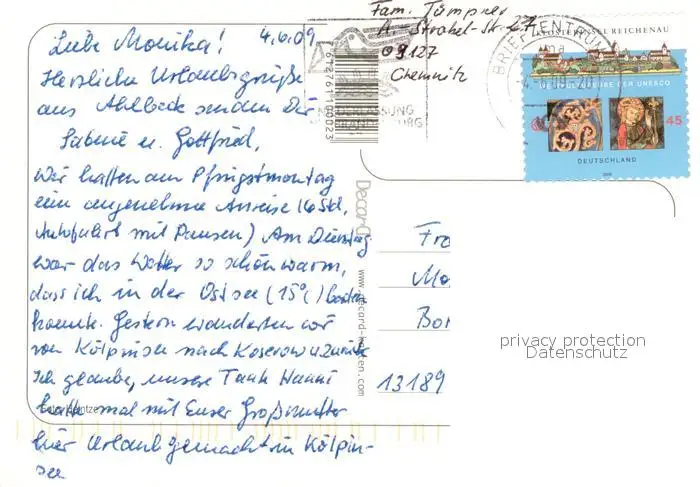 Fam. Tümpner
A.-Strobel-Str. 27
09127
Chemnitz
Liebe Monika! 4.6.09
Herzliche Urlaubsgrüße
aus Ahlbeck senden Dir
Sabine u. Gottfried,
Wir hatten am Pfingstmontag
eine angenehme Anreise (6 Std.
Autofahrt mit Pausen) Am Dienstag
war das Wetter so schön warm,
dass ich in der Ostsee (15°C) baden
konnte. Gestern wanderten wir
von Kölpinsee nach Koserow u. zurück
Ich glaube, unsere Tante Hanni
hatte mal mit Euer Großmutter
hier Urlaub gemacht in Kölpin-
see
BRIEFZENTRUM
KLOSTERINSEL REICHENAU
WELTKULTURERBE DER UNESCO
45
DEUTSCHLAND
NIEDERLASSUNG
BRANDENBURG
www.decard-karten.com
Fra
Mo
Bor
13189
privacy protection
Datenschutz